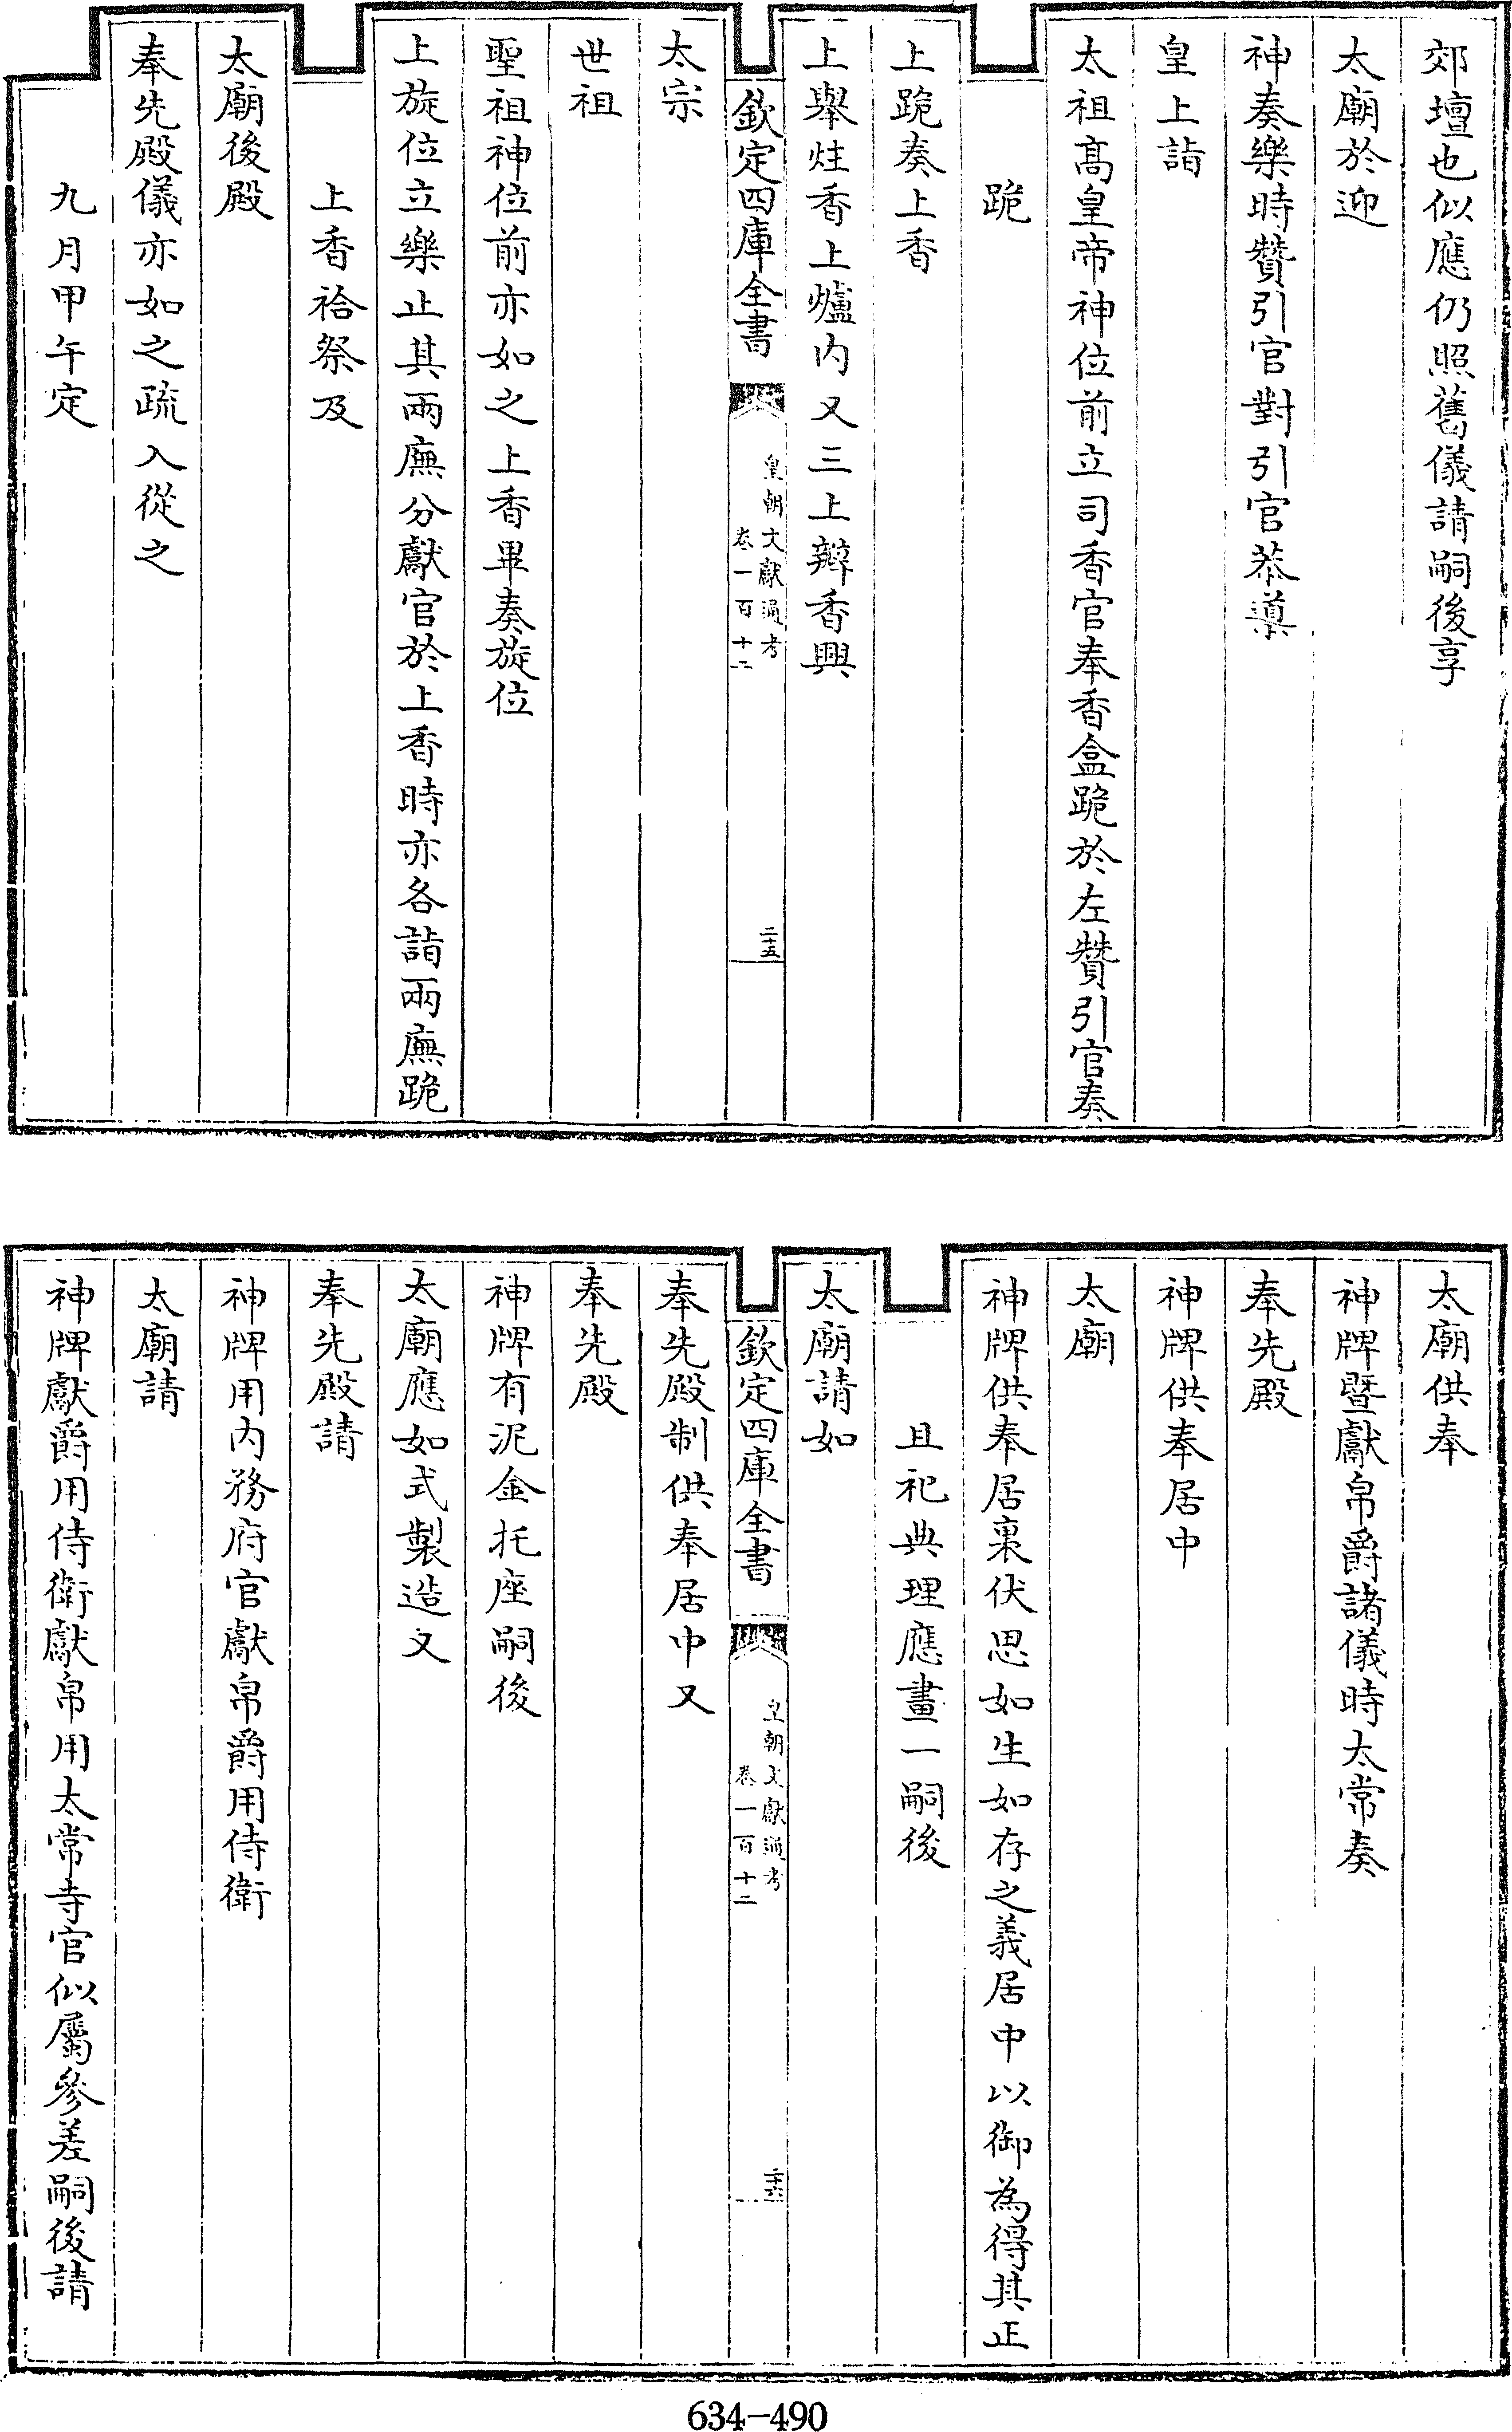 郊壇也似應仍照舊儀請嗣後享
太廟於迎
神奏樂時贊引官對引官恭導
皇上詣
太祖高皇帝神位前立司香官奉香盒跪於左贊引官奏
跪
上跪奏上香
上舉炷香上爐内又三上瓣香興
欽定四庫全書
皇朝文獻通考
卷一百十二
二十五
太宗
世祖
聖祖神位前亦如之上香畢奏旋位
上旋位立樂止其兩廡分獻官於上香時亦各詣兩廡跪
上香祫祭及
太廟後殿
奉先殿儀亦如之疏入從之
九月甲午定
太廟供奉
神牌暨獻帛爵諸儀時太常奏
奉先殿
神牌供奉居中
太廟
神牌供奉居裏伏思如生如存之義居中以御為得其正
且祀典理應畫一嗣後
太廟請如
欽定四庫全書
皇朝文獻通考
卷一百十二
二十六
奉先殿制供奉居中又
奉先殿
神牌有泥金托座嗣後
太廟應如式製造又
奉先殿請
神牌用内務府官獻帛爵用侍衛
太廟請
神牌獻爵用侍衛獻帛用太常寺官似屬參差嗣後請
634-490